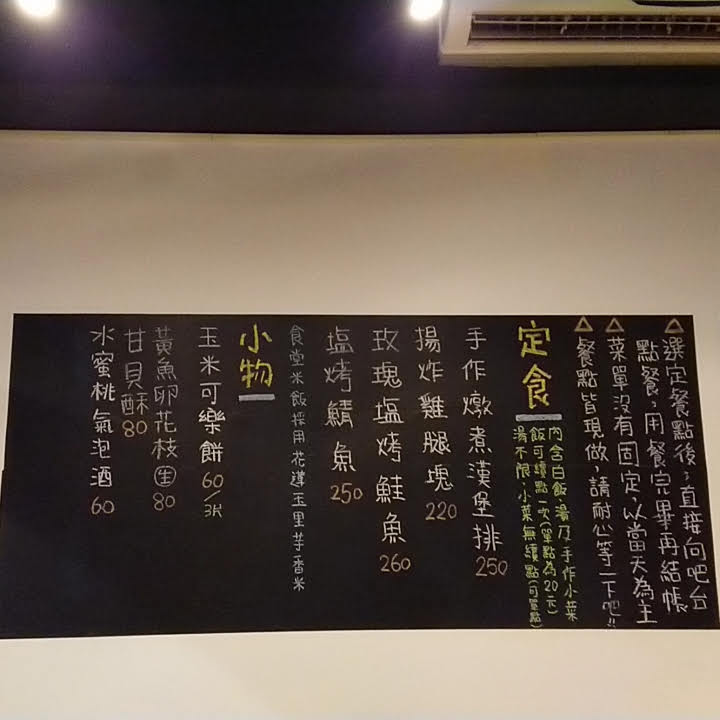 △選定餐點後，直接向吧台
點餐，用餐完畢再結帳
△菜單沒有固定，以當天為主
△餐點皆現做，請耐心等一下吧!!
定食
內含白飯湯及手作小菜
飯可續點一次(單點為20元)
湯不限，小菜無續點(可單點)
手作燉煮漢堡排 250
揚炸雞腿塊 220
玫瑰塩烤鮭魚 260
塩烤鯖魚 250
食堂米飯採用花蓮玉里芋香米
小物
玉米可樂餅 60/3片
黃魚卵花枝㊌ 80
甘貝酥 80
水蜜桃氣泡酒 60